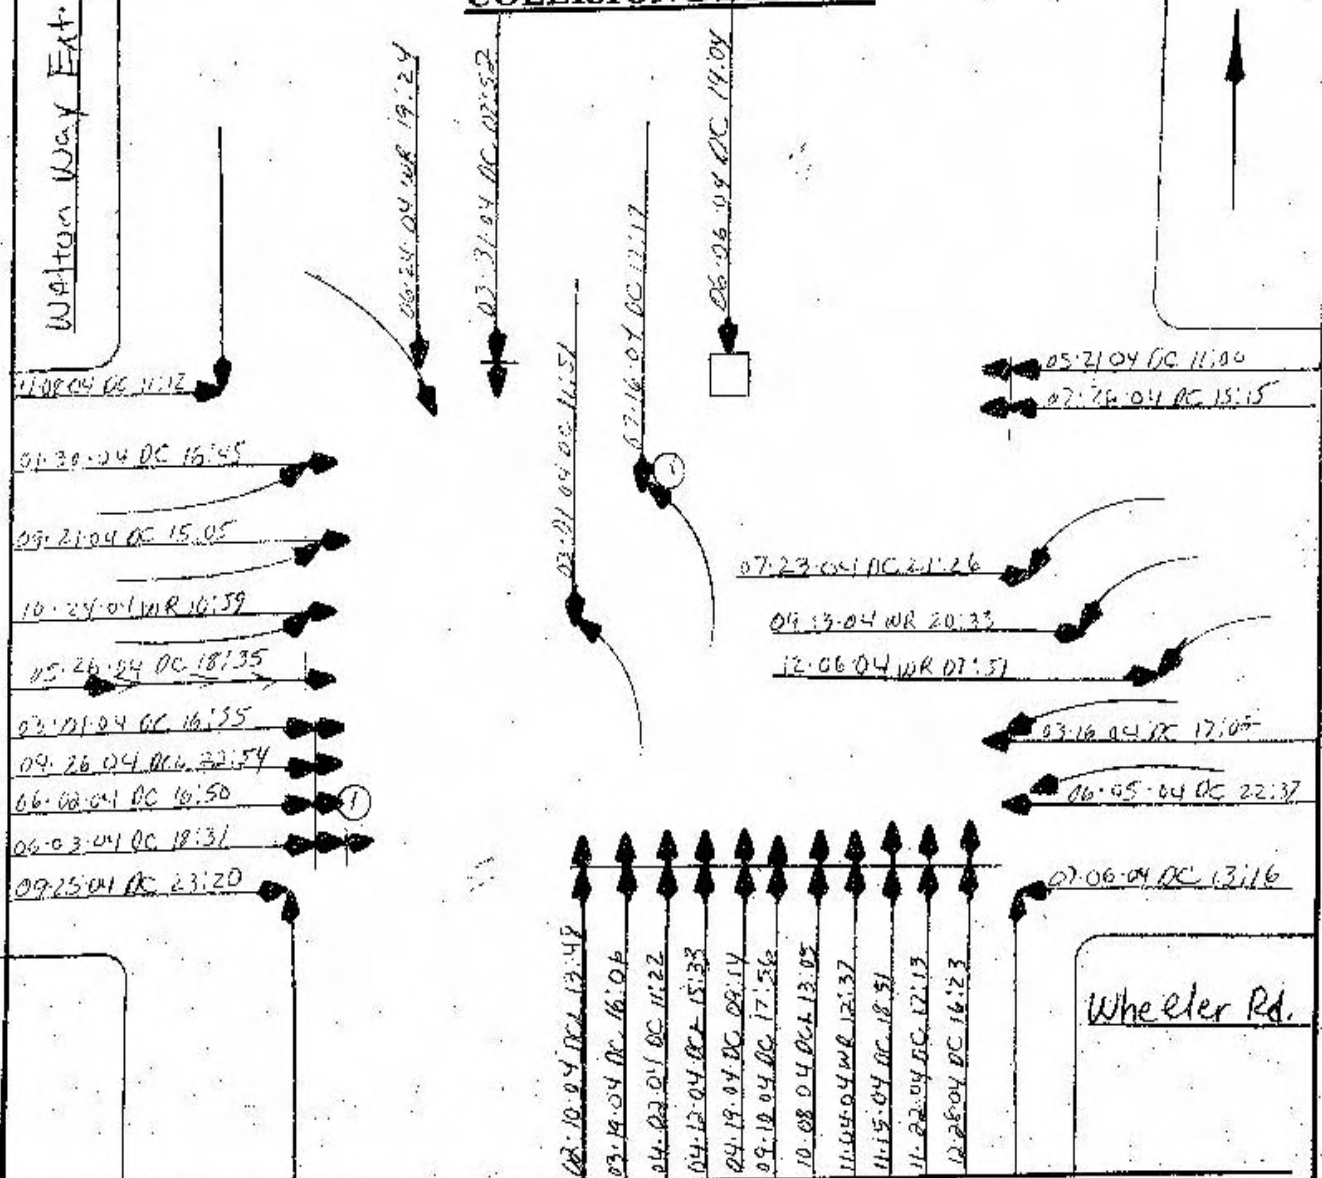 Walton Way Ext.
06·24·04 WR 19:24
03·31·04 DC 07:52
06·06·04 DC 14:04
07·16·04 DC 12:17
03·01·04 DC 11:51
11·08·04 DC 11:12
01·30·04 DC 16:45
09·21·04 DC 15:05
WR 10:59
05·26·04 DC 18:35
03·01·04 DC 16:55
09·26·04 22:54
06·02·04 DC 16:50
1
1
06·03·04 DC 18:31
09·25·04 DC 23:20
05·21·04 DC 11:00
DC 15:15
07·23·04 DC 21:26
09·13·04 WR 20:33
12·06·04 WR 07:51
03·16·04 DC 17:05
06·05·04 DC 22:37
07·06·04 DC 13:16
02·10·04 13:48
03·19·04 DC 16:06
04·02·04 DC 11:22
04·12·04 15:33
04·19·04 DC 09:14
09·10·04 DC 17:56
10·08·04 13:05
11·04·04 WR 12:37
11·15·04 DC 18:51
11·22·04 DC 17:13
12·28·04 DC 16:23
Wheeler Rd.